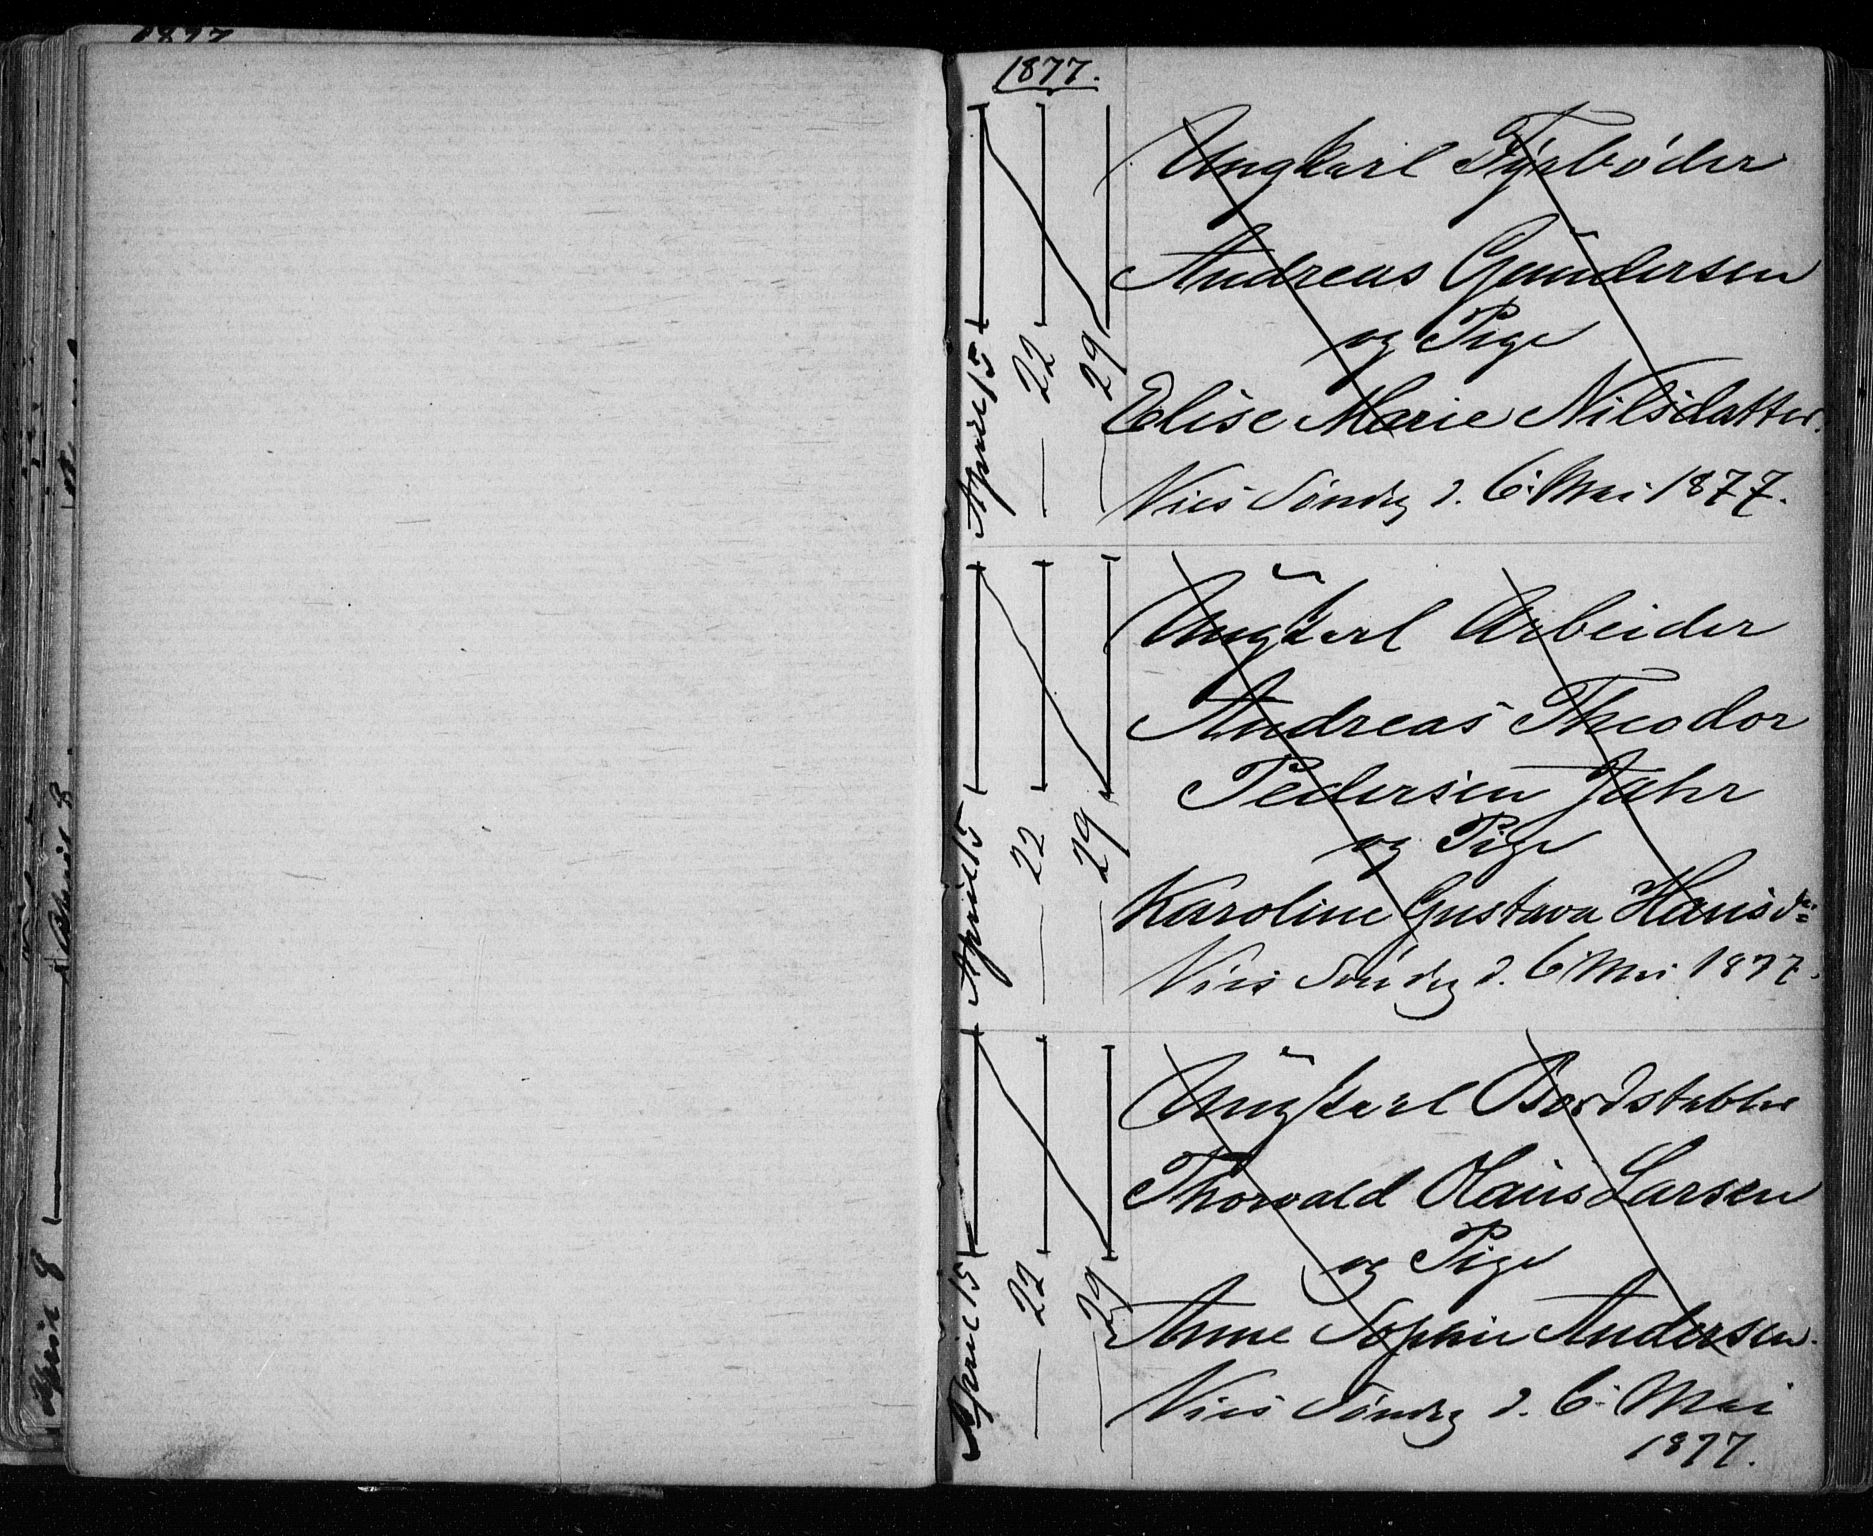 1877.
Ungkarl Fyrbøder
Andreas Gundersen
og Pige
Elise Marie Nilsdatter.
Vies Søndag d. 6. Mai 1877.
April 15
— 22
— 29
Ungkarl Arbeider
Andreas Theodor
Pedersen Jahr
og Pige
Karoline Gustava Hansdr:
Vies Søndag d. 6 Mai 1877.
April 15
— 22
— 29
Ungkarl Bordstabler
Thorvald Hans Larsen
og Pige
Anne Sophie Andersen.
Vies Søndag d. 6. Mai
1877.
April 15
— 22
— 29
1877
April 8
April 8